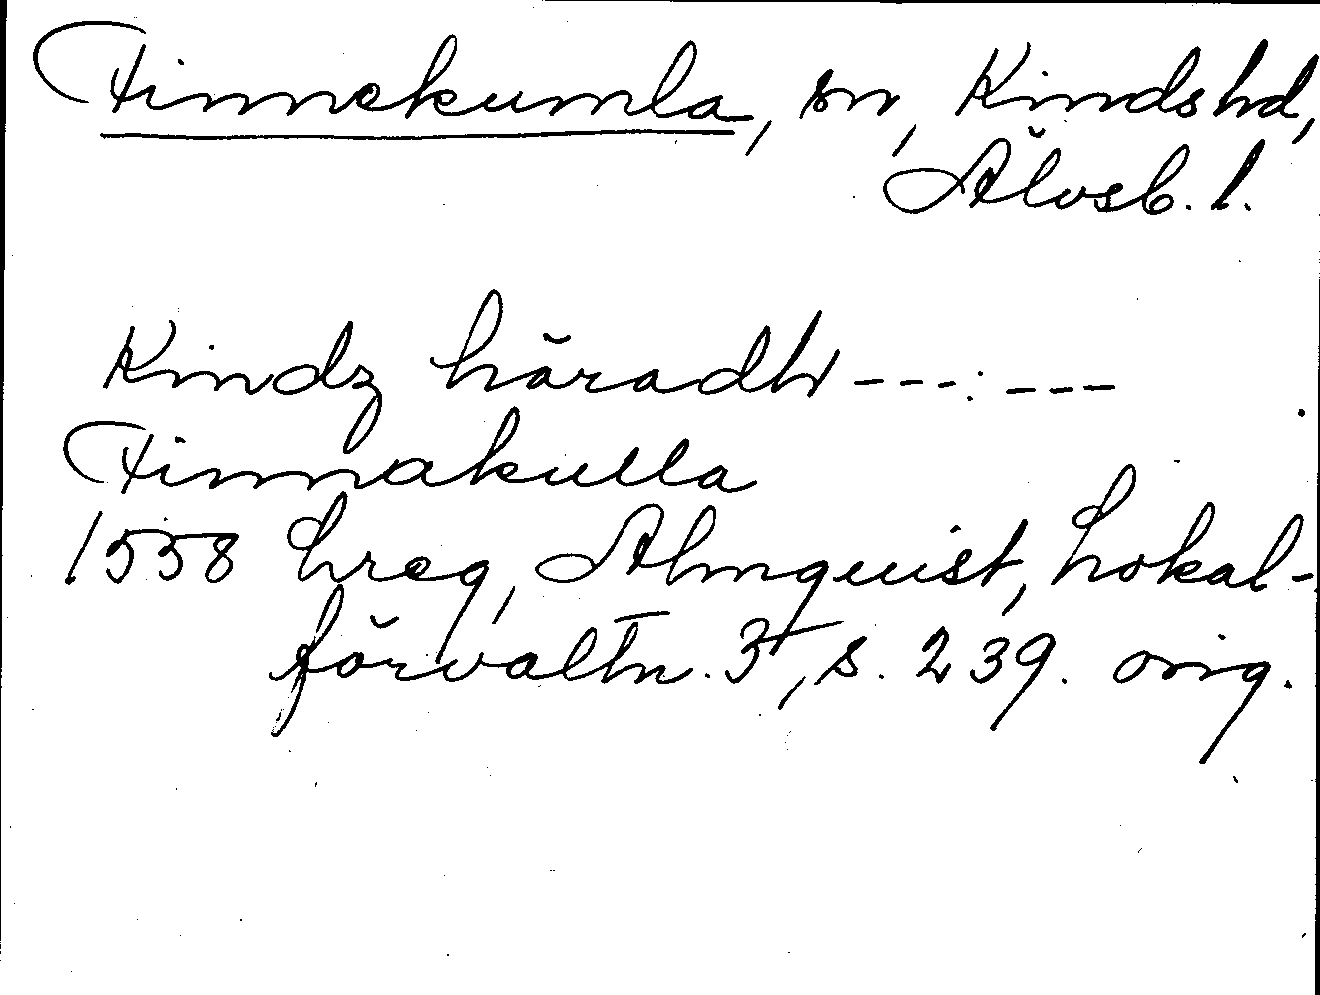 Finnekumla, sn, Kinds hd,
Älvsb. l.
Kindz häradh ---:---
Finnakulla
1558 Lreg, Almquist, Lokal-
förvaltn. 3, s. 239. orig.